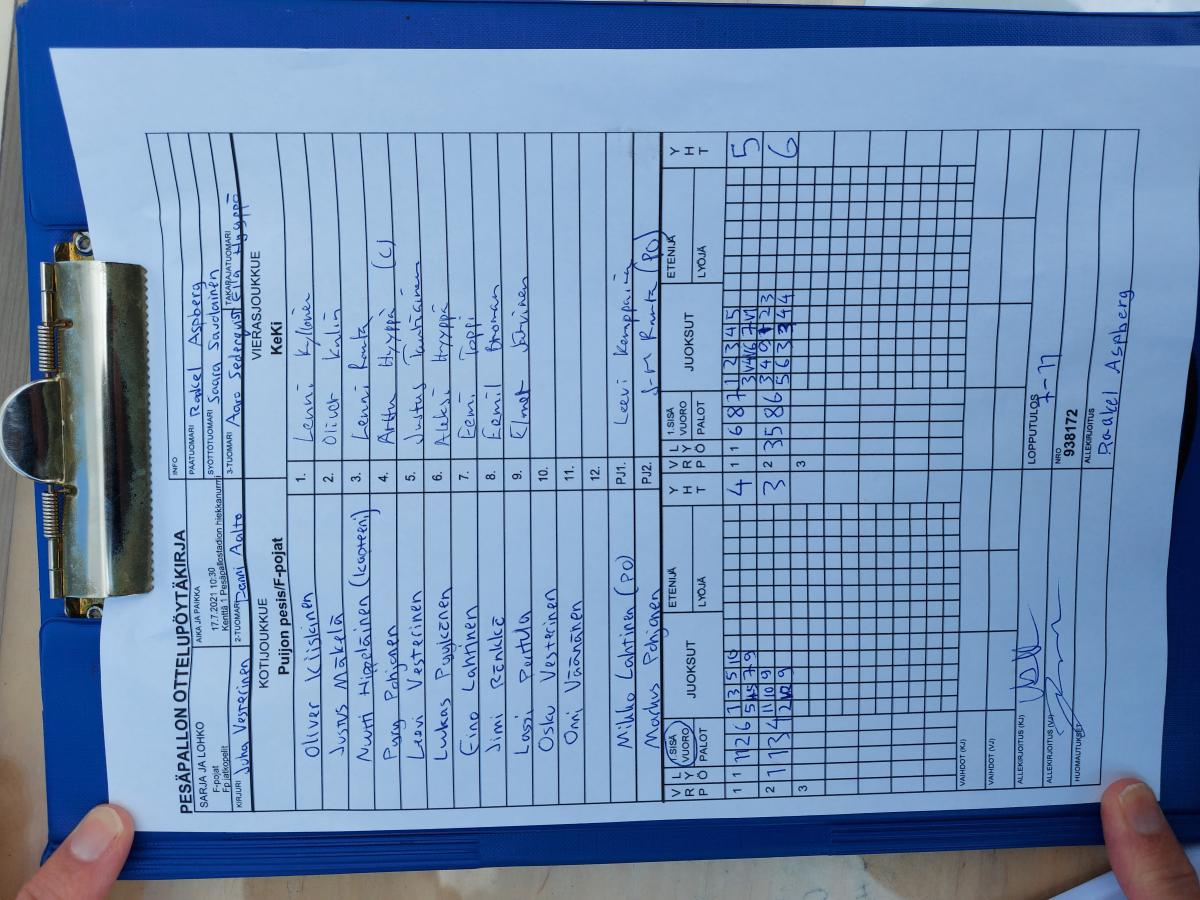 PESÄPALLON OTTELUPÖYTÄKIRJA
SARJA JA LOHKO
F-pojat
Fp jatkopelit
AIKA JA PAIKKA
17.7.2021 10:30
Kenttä 1 Pesäpallostadion hiekkanurmi
INFO
PÄÄTUOMARI Raakel Aspberg
SYÖTTÖTUOMARI Saara Savolainen
KIRJURI Juha Vesterinen
2-TUOMARI Danni Aalto
3-TUOMARI Aaro Sederqvist
TAKARAJATUOMARI Ella Hyyppä
KOTIJOUKKUE
Puijon pesis/F-pojat
VIERASJOUKKUE
KeKi
Oliver Kiiskinen 1. Lenni Kyllönen
Justus Mäkelä 2. Olivar Kulin
Nuutti Hippeläinen (kapteeni) 3. Lenni Ranta
Pyry Pohjonen 4. Arttu Hyyppä (C)
Leevi Vesterinen 5. Justus
Lukas Pyykönen 6. Aleksi Hyyppä
Eino Lahtinen 7. Eemi Toppi
Jimi Rönkkö 8. Eemil Broman
Lassi Perttula 9. Elmot
Osku Vesterinen 10.
Onni Väänänen 11.
12.
Mikko Lahtinen (PO) PJ1. Leevi Kemppainen
Markus Pohjonen PJ2. Ranta (PO)
V R P L Y Ö 1.SISÄ VUORO PALOT JUOKSUT ETENIJÄ LYÖJÄ Y H T V R P L Y Ö 1.SISÄ VUORO PALOT JUOKSUT ETENIJÄ LYÖJÄ Y H T
1 1 11 2 6 1 3 5 10 4 1 1 6 8 7 1 2 3 4 5 5
5 7 9 3
2 1 1 3 4 11 10 9 3 2 3 5 8 6 3 4 9 1 2 3 6
2 9 5 6 3 4 4
3 3
VAIHDOT (KJ)
VAIHDOT (VJ)
ALLEKIRJOITUS (KJ)
LOPPUTULOS
7-11
ALLEKIRJOITUS (VJ)
NRO
938172
HUOMAUTUKSET
ALLEKIRJOITUS
Raakel Aspberg